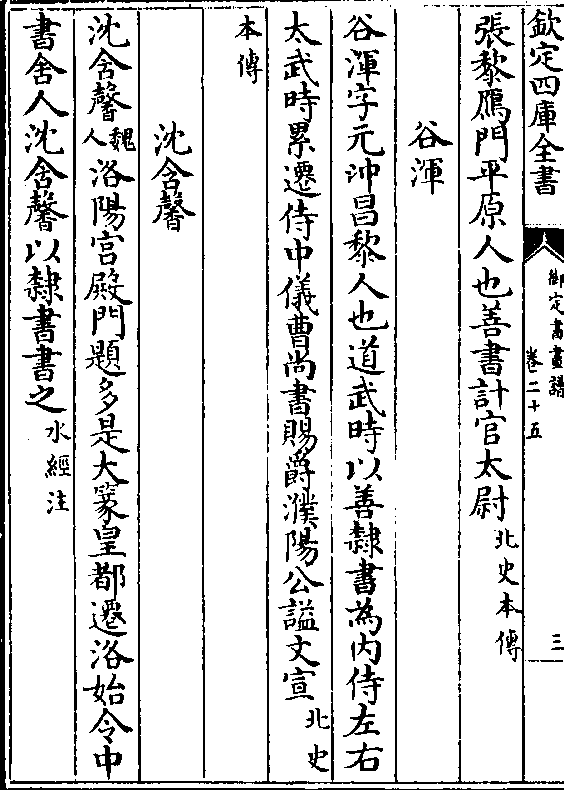 欽定四庫全書
御定書畫譜
卷二十五
三
張黎鴈門平原人也善書計官太尉北史本傳
谷渾
谷渾字元沖昌黎人也道武時以善隸書為内侍左右
太武時累遷侍中儀曹尚書賜爵濮陽公謚文宣北史
本傳
沈含馨
沈含馨魏人洛陽宫殿門題多是大篆皇都遷洛始令中
書舍人沈含馨以隸書書之水經注